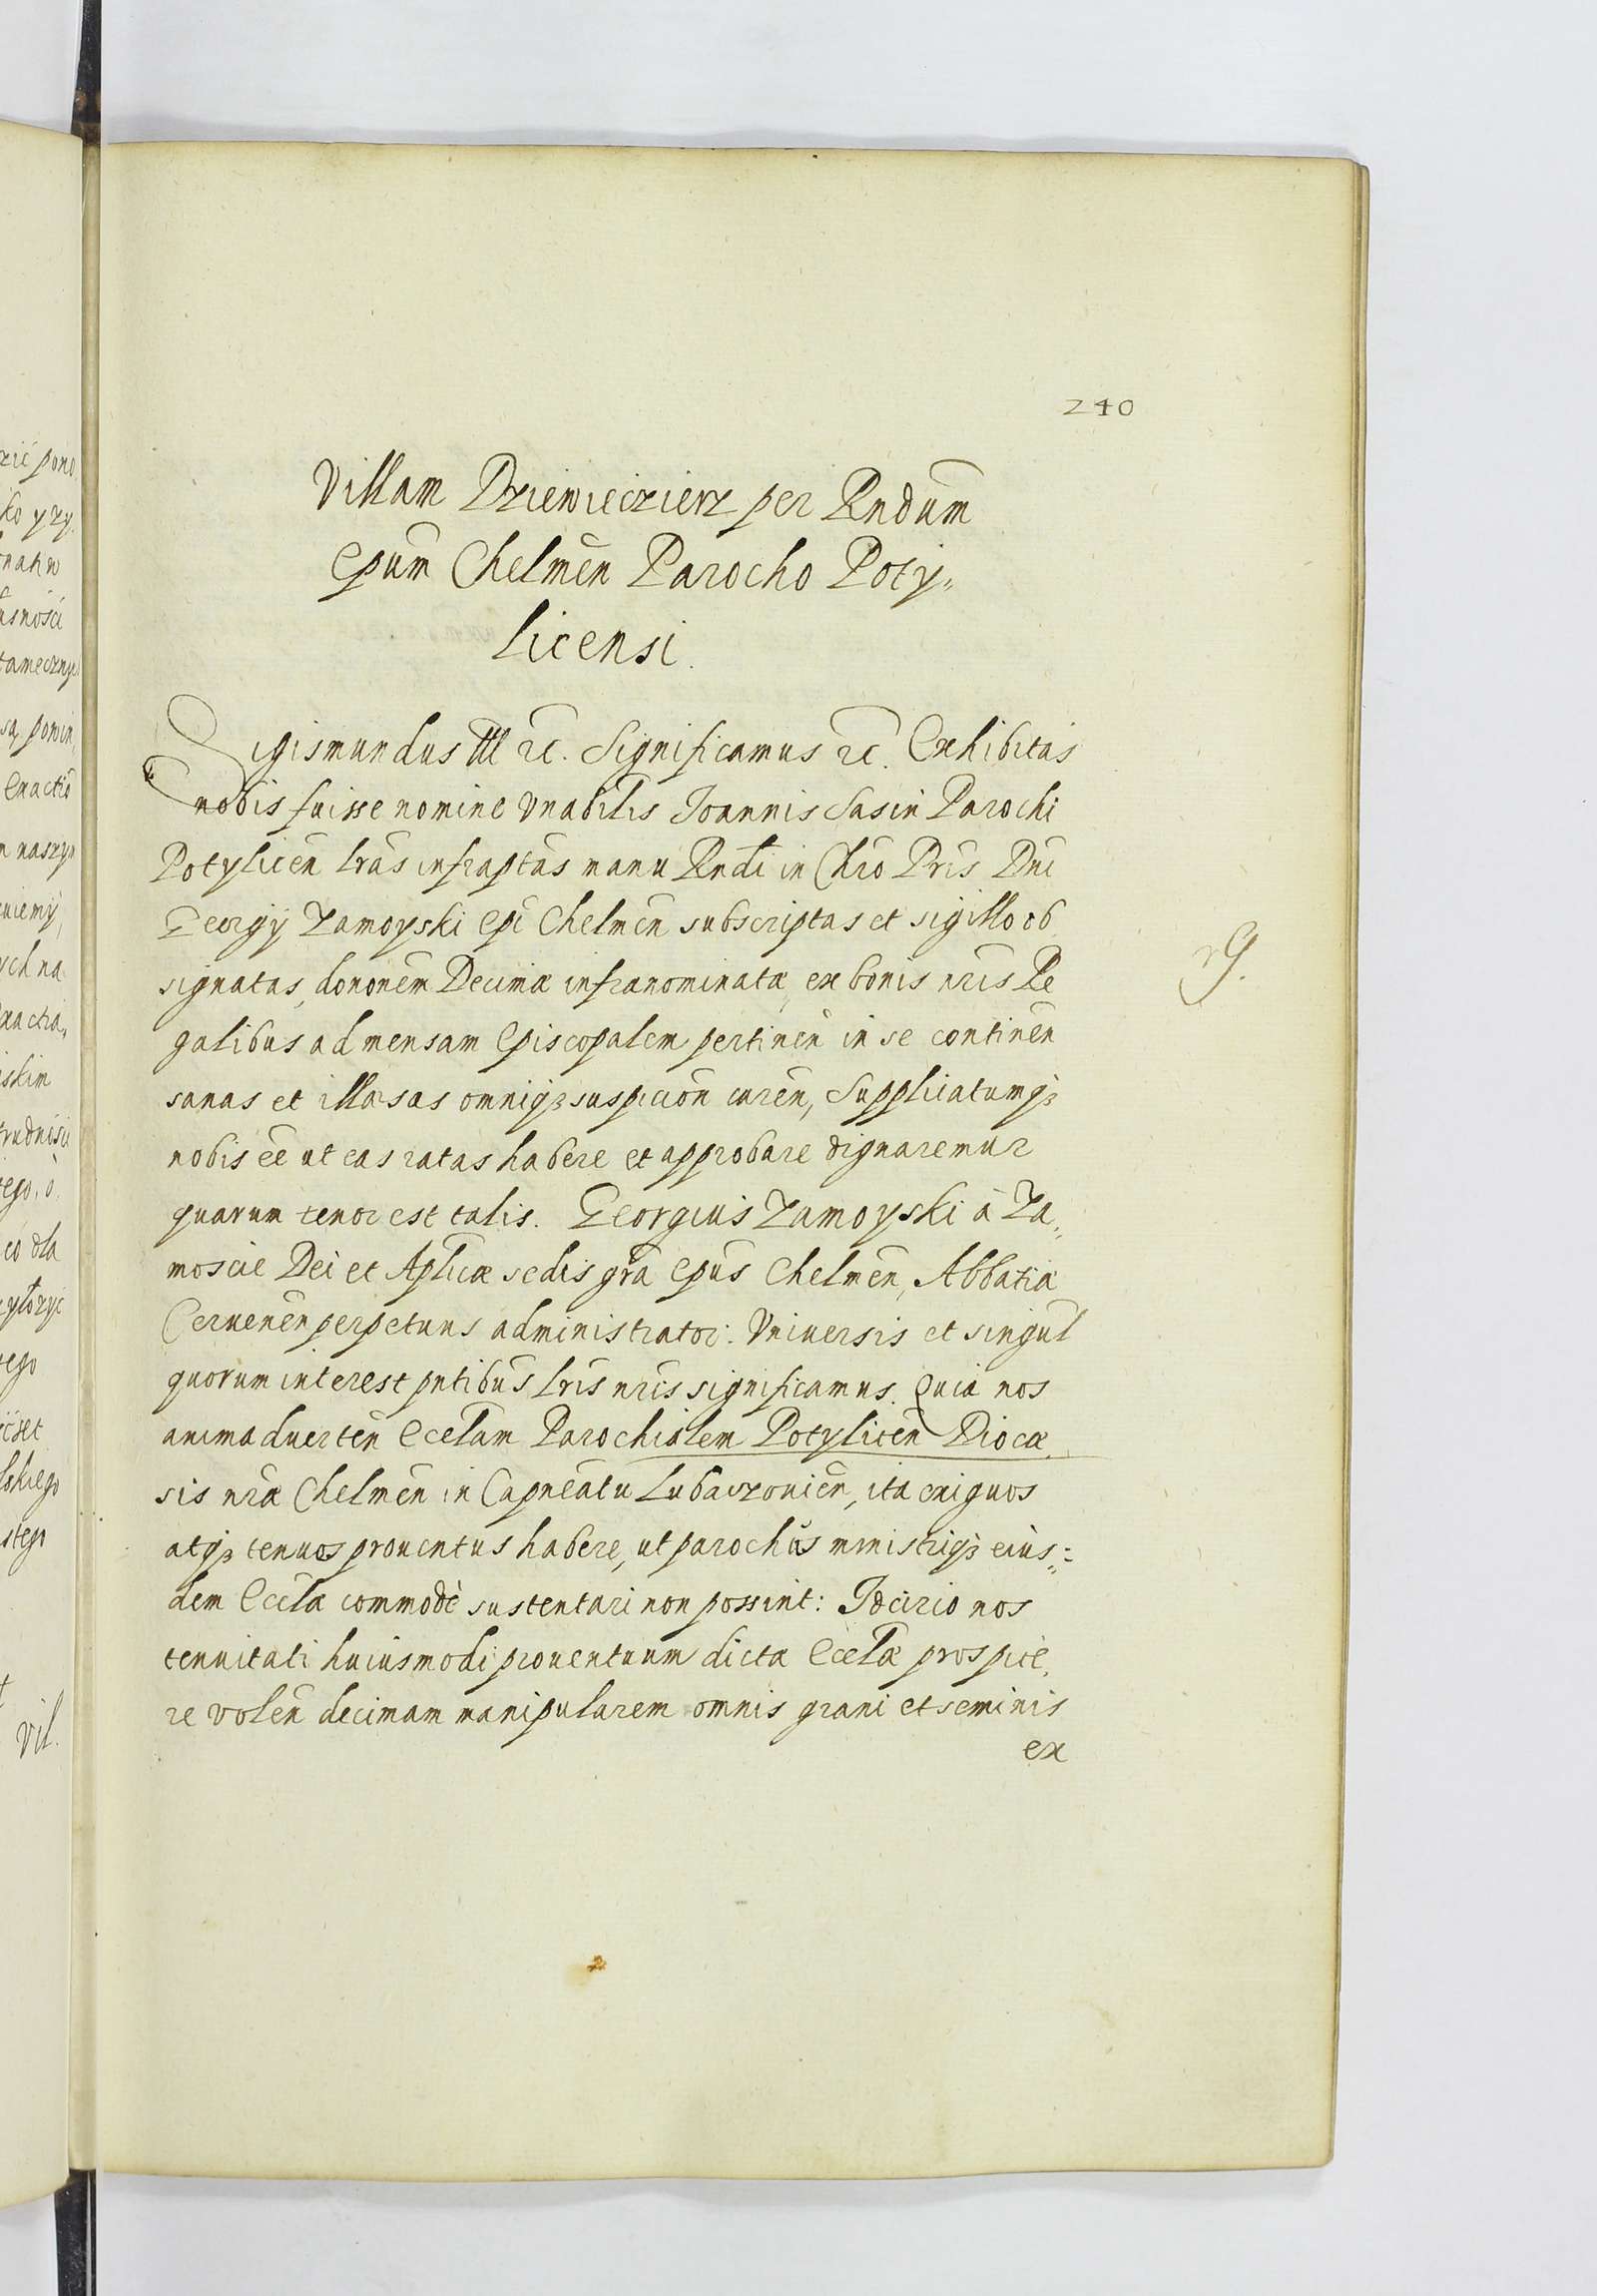 240
Villam Dziewiecierz per Rndūm
Epūm Chelmēn Parocho Poty„
licensi.
Sigismundus III rc̄. Significamus rc̄. Exhibitas
nobis fuisse nomine Vnabilis Joannis Sasin Parochi
Potylicēn lrās infraptās manu Rndī in Chrō Prīs Dnī
Georgÿ Zamoyski Epī Chelmēn subscriptas et sigillo ob
signatas, donōnem Decimæ infranominatæ, ex bonis nrīs Re
galibus ad mensam Episcopalem pertinēn in se continēn
sanas et illæsas omniqȝ suspiciōn carēn, Supplicatumqȝ
nobis eē ut eas ratas habere et approbare dignaremur
quarum tenor est talis. Georgius Zamoyski à Za„
moscie Dei et Aplīcæ sedis grā Epūs Chelmēn, Abbatiæ
Cervenēn perpetuus administrator. Vniversis et singūl
quorum interest pntibūs lrīs nrīs significamus. Quia nos
animaduertēn Eccłam Parochialem Potylicēn Diocæ
sis nræ Chelmēn in Capneātu Lubaczoviēn, ita exiguos
atqȝ tenuos prouentus habere, ut parochus ministriqȝ eius„
dem Eccłæ commodè sustentari non possint: Idcirco nos
tenuitati huiusmodi prouentuum dictæ Eccłæ prospice
re volēn decimam manipularem omnis grani et seminis
ex
vil.